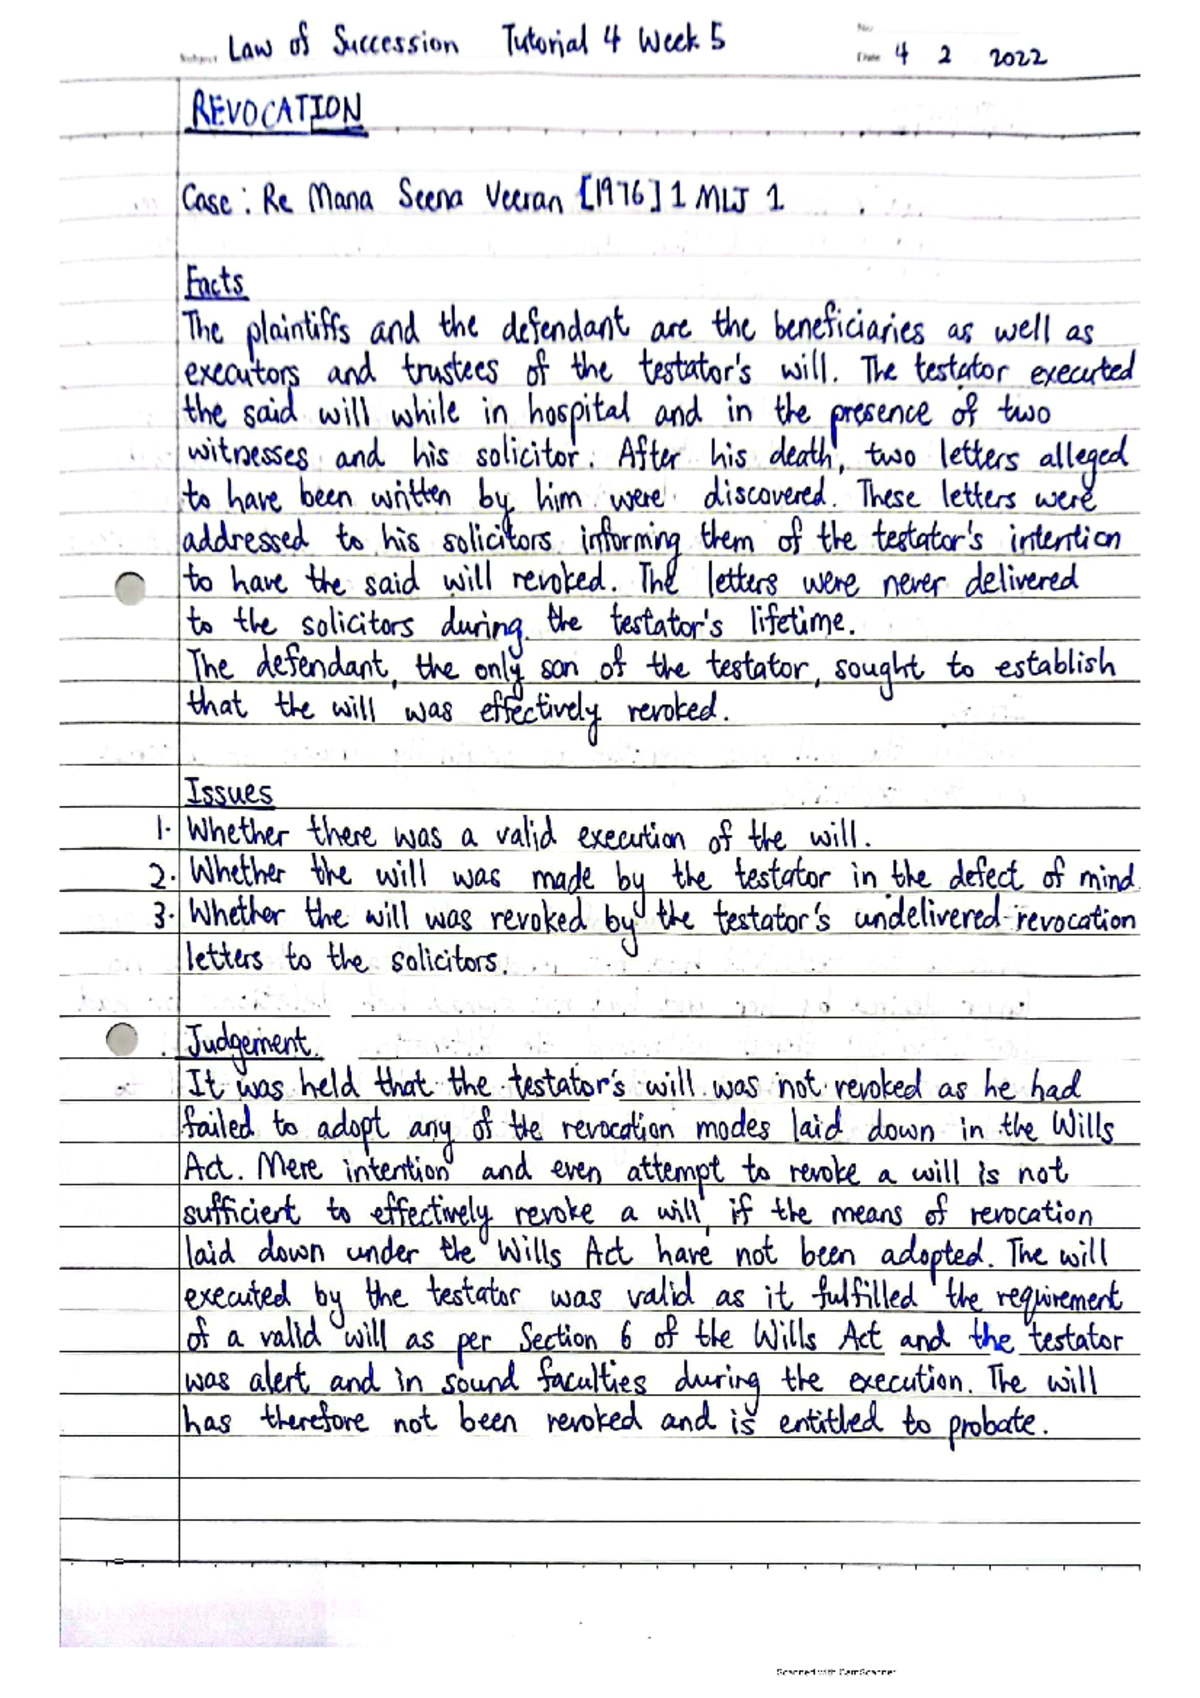 Subject Law of Succession Tutorial 4 Week 5
No.
Date 4 2 2022
REVOCATION
Case: Re Mana Seena Veeran [1976] 1 MLJ 1
Facts
The plaintiffs and the defendant are the beneficiaries as well as
executors and trustees of the testator's will. The testator executed
the said will while in hospital and in the presence of two
witnesses and his solicitor. After his death, two letters alleged
to have been written by him were discovered. These letters were
addressed to his solicitors informing them of the testator's intention
to have the said will revoked. The letters were never delivered
to the solicitors during the testator's lifetime.
The defendant, the only son of the testator, sought to establish
that the will was effectively revoked.
Issues
1. Whether there was a valid execution of the will.
2. Whether the will was made by the testator in the defect of mind.
3. Whether the will was revoked by the testator's undelivered revocation
letters to the solicitors.
Judgement
It was held that the testator's will was not revoked as he had
failed to adopt any of the revocation modes laid down in the Wills
Act. Mere intention and even attempt to revoke a will is not
sufficient to effectively revoke a will, if the means of revocation
laid down under the Wills Act have not been adopted. The will
executed by the testator was valid as it fulfilled the requirement
of a valid will as per Section 6 of the Wills Act and the testator
was alert and in sound faculties during the execution. The will
has therefore not been revoked and is entitled to probate.
Scanned with CamScanner